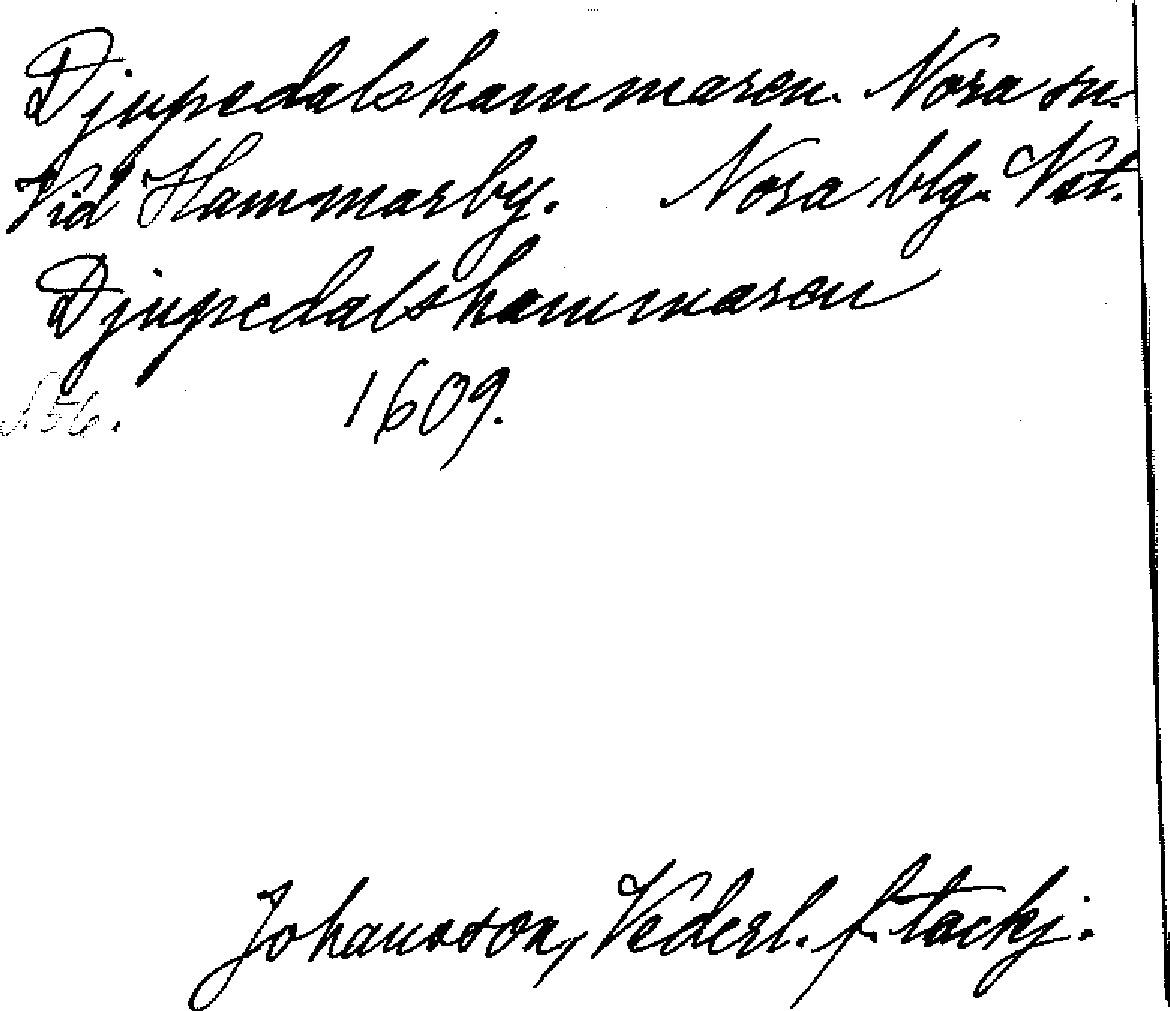 Djupedalshammaren. Nora sn.
Vid Hammarby. Nora blg. Vst.
Djupedalshammaren
s. 56. 1609.
Johansson, Vederl. f. tackj.